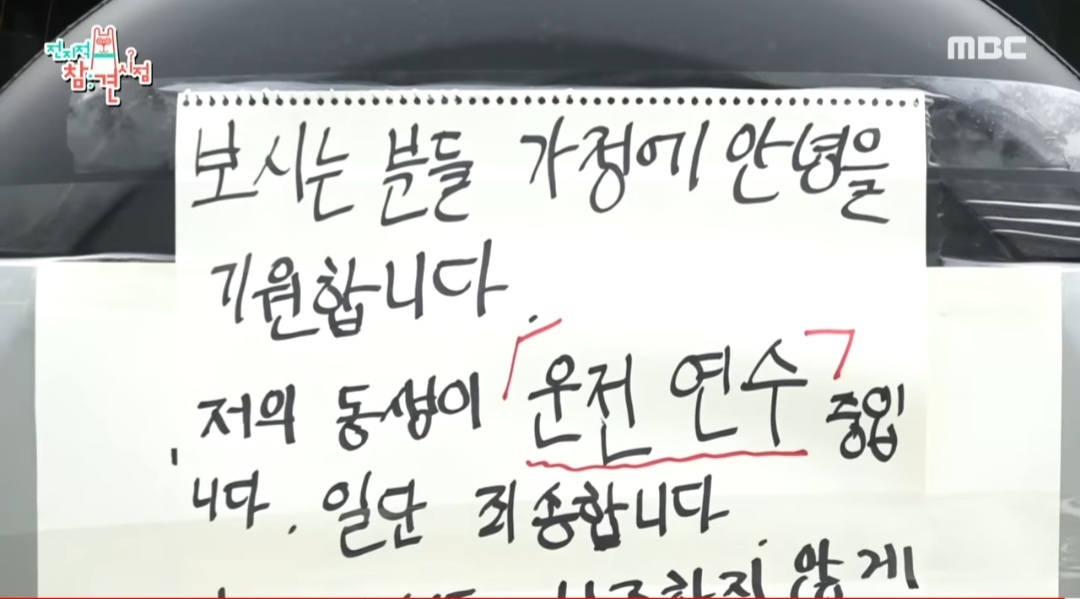 전지적 참견 시점
MBC
보시는 분들 가정에 안녕을
기원합니다.
저의 동생이 「운전 연수」 중입
니다. 일단 죄송합니다
않게